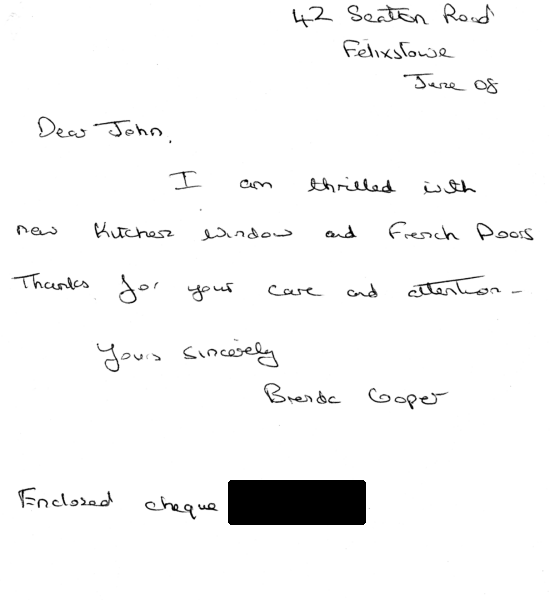 42 Seaton Road
Felixstowe
June 08
Dear John,
I am thrilled with
new Kitchen window and French Doors
Thanks for your care and attention -
Yours sincerely
Brenda Cooper
Enclosed cheque